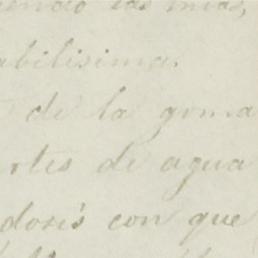 las mias,
abilisima.
de la goma
rtes de agua
dosis con que